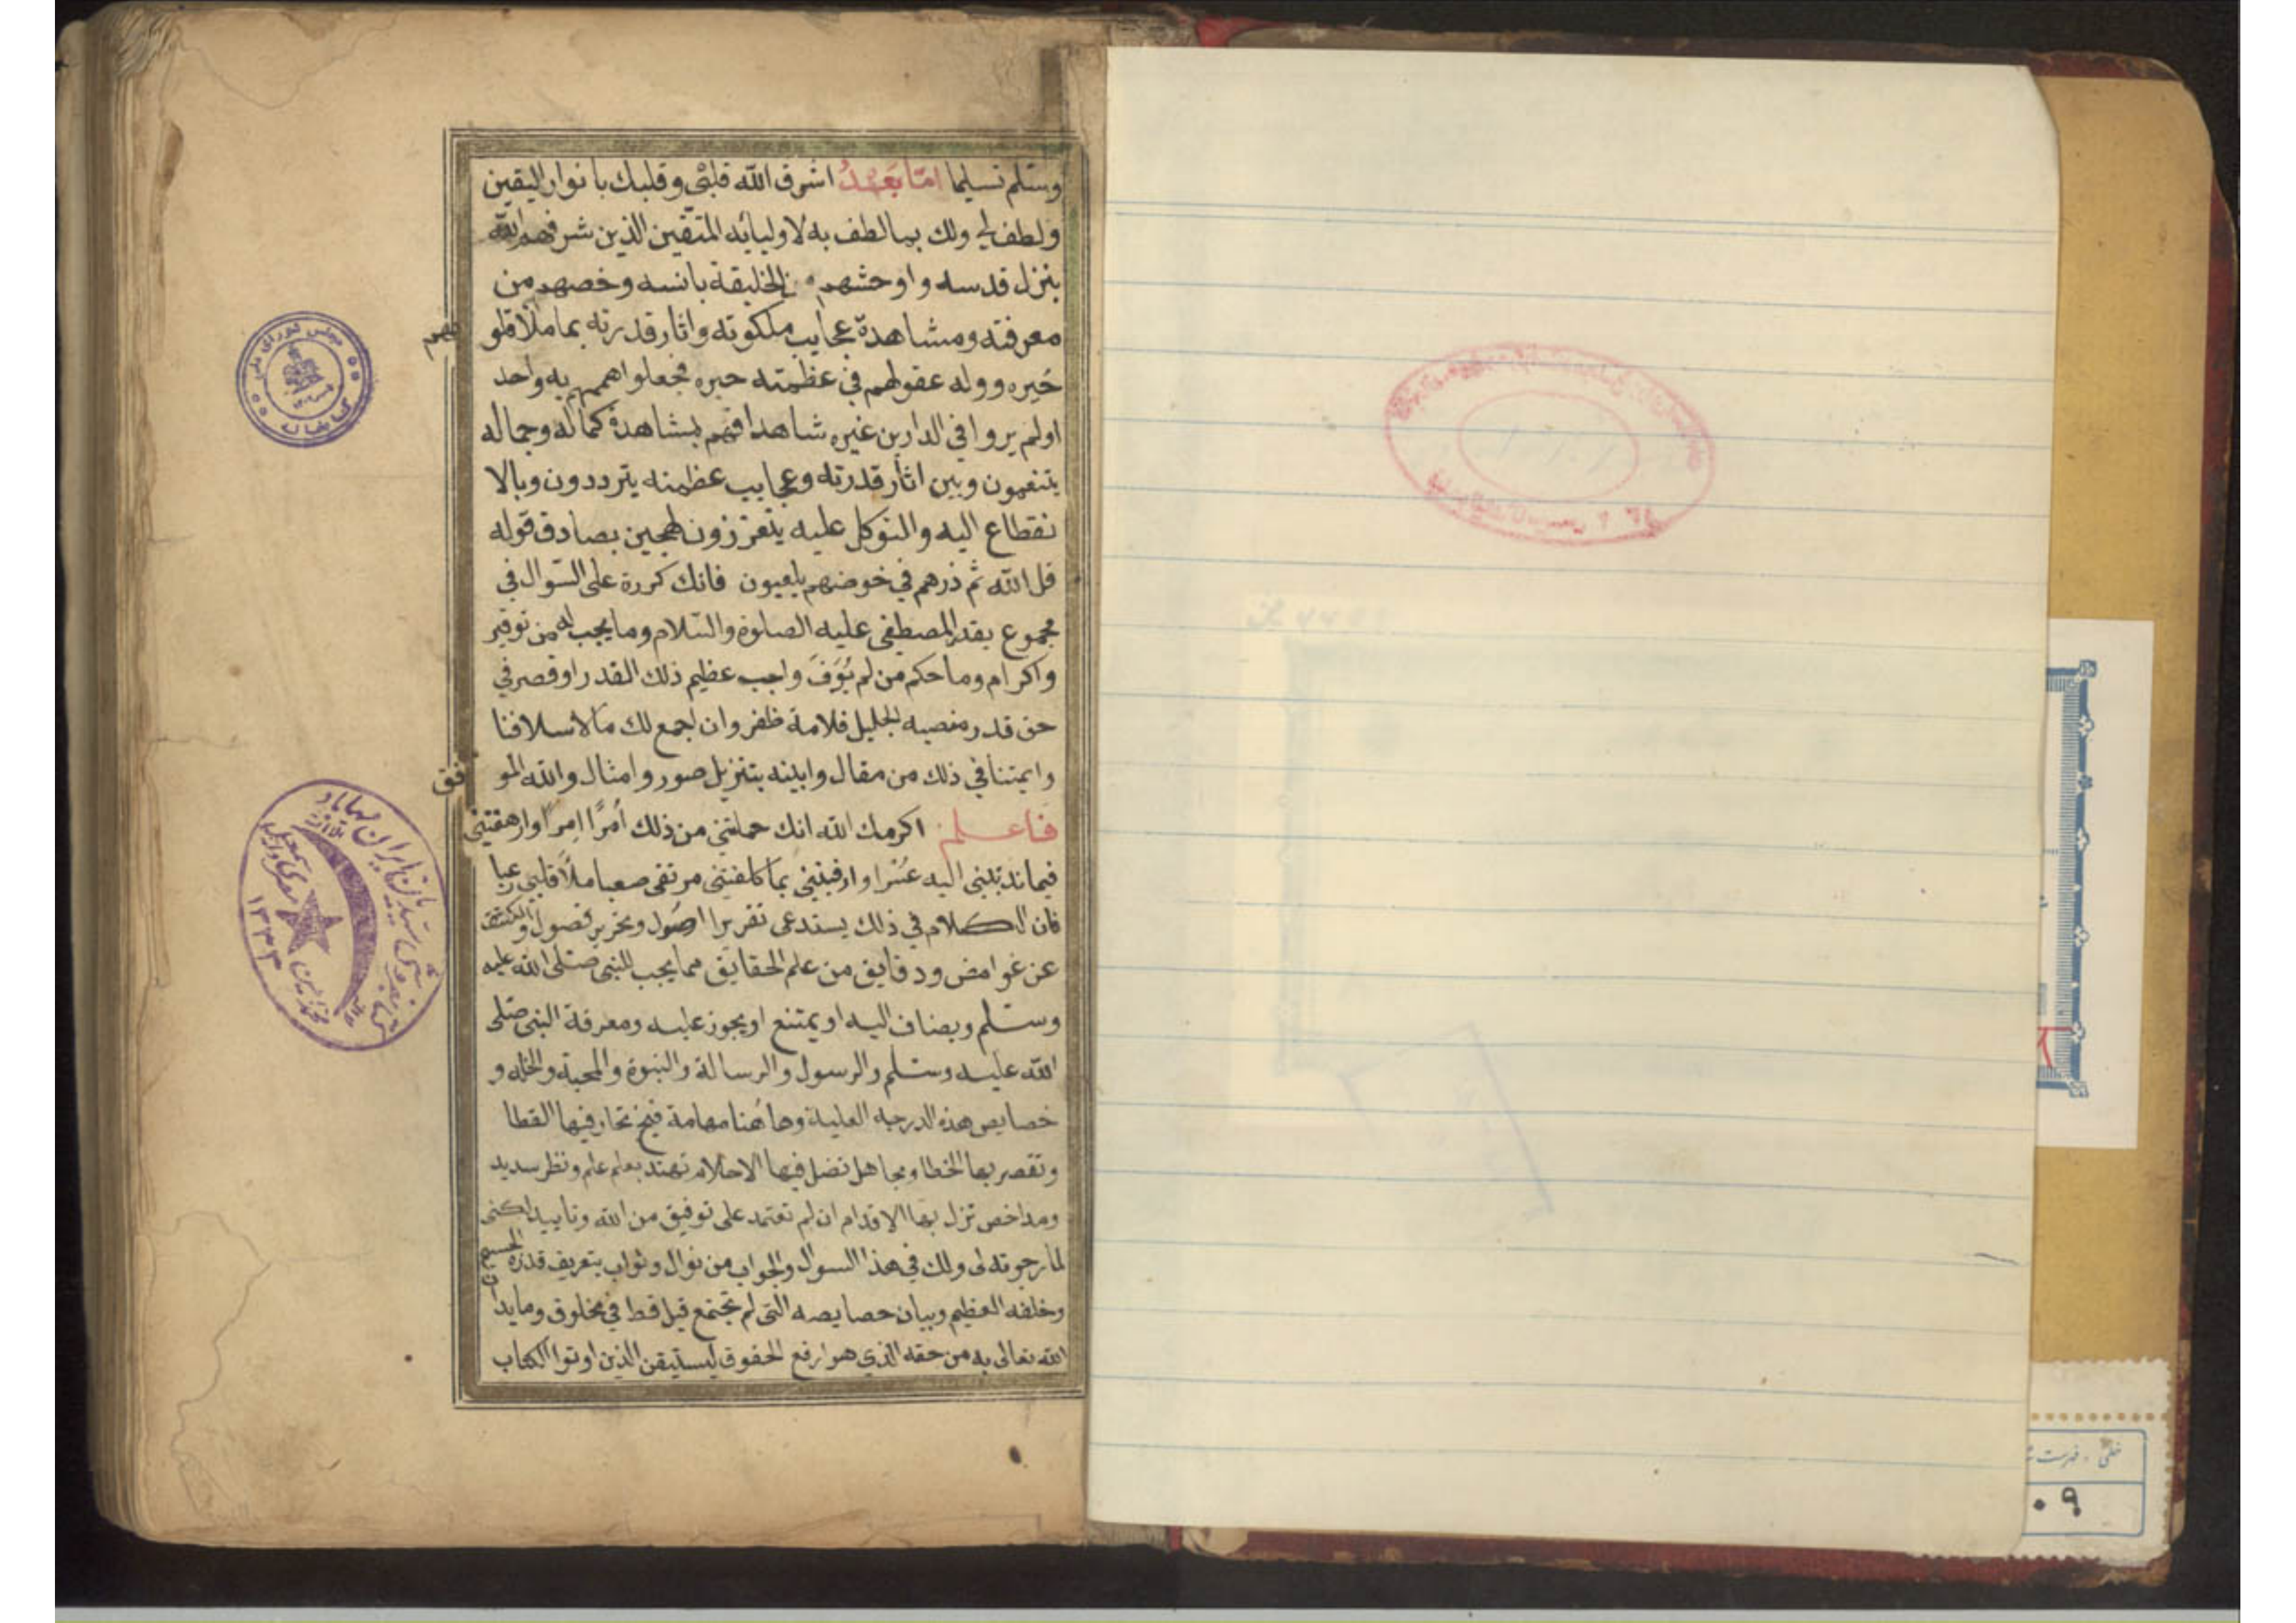 وسلم تسليما امّا بَعْدُ اشرق الله قلبي وقلبك بانوار اليقين
ولطف لي ولك بما لطف به لاوليائه المتقين الذين شرفهم الله
بنزل قدسه واوحشهم من الخليقة بانسه وخصهم من
معرفته ومشاهدة عجايب ملكوته واثار قدرته بما ملأ قلوبهم
حَيره ووله عقولهم في عظمته حيره فجعلوا همهم به واحد
اولم يروا في الدارين غيره شاهدا فهم بمشاهدة كماله وجماله
يتنعمون وبين اثار قدرته وعجايب عظمته يترددون وبالا
نقطاع اليه والتوكل عليه يتعززون لهجين بصادق قوله
قل الله ثم ذرهم في خوضهم يلعبون فانك كررة على السّوال في
مجموع بقدر المصطفى عليه الصلوة والسّلام وما يجب له من توقير
واكرام وما حكم من لم يُوَفَ واجب عظيم ذلك القدر او قصر في
حق قدر منصبه الجليل قلامة ظفر وان اجمع لك ما لاسلافنا
وايمتنا في ذلك من مقال وابينه بتنزيل صور وامثال والله الموفق
فاعلم اكرمك الله انك حملتني من ذلك اَمرًا اِمرًا وارهقتني
فيما ندبتني اليه عسرا وارقيتني بما كلفتني مرتقى صعبا ملأ قلبي رعبا
فان الكلام في ذلك يستدعى تقريرا اصول وتحرير فصول والكشف
عن غوامض ودقايق من علم الحقايق مما يجب للنبي صلى الله عليه
وسلم ويضاف اليه او يمتنع او يجوز عليه ومعرفة النبي صلى
الله عليه وسلم والرسول والرسالة والنبوة والمحبة والخله و
خصايص هذه الدرجه العلية وهاهنا مهامة فيح تحار فيها القطا
وتقصر بها الخطا ومجاهل تضل فيها الاحلام تهتد بعلم علم ونظر سديد
ومداحض تزل بها الاقدام ان لم تعتمد على توفيق من الله وتاييد لكنى
لما رجوته لى ولك في هذا السوال والجواب من نوال وثواب بتعريف قدره الجسيم
وخلقه العظيم وبيان خصايصه التى لم تجتمع قبل قط في مخلوق وما يدان
الله تعالى به من حقه الذي هو ارفع الحقوق ليستيقن الذين اوتوا الكتاب
مجلس شورای ملی
کتابخانه
۱۳۳۳
خطی - فهرست
۰۹